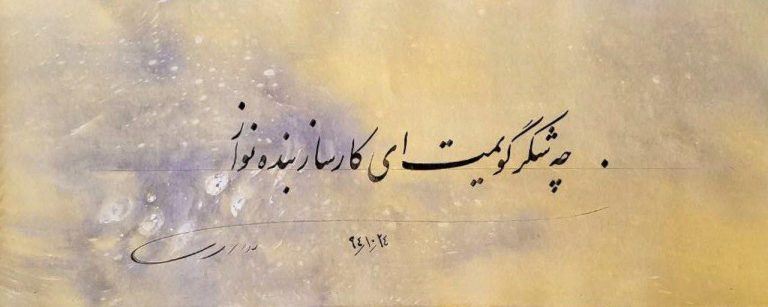 چه شکر گویمت ای کارساز بنده نواز
۹٤/۱۰/۲٤